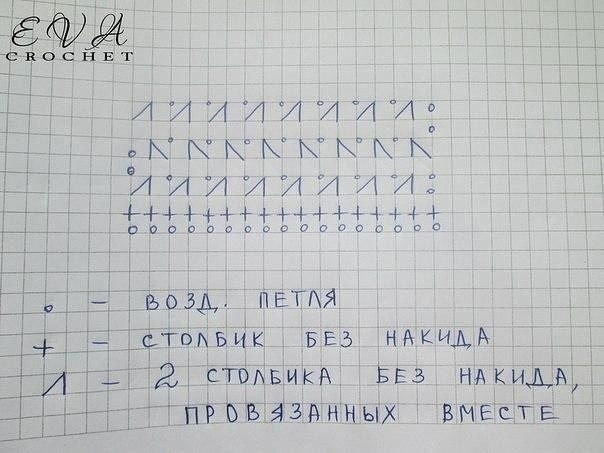 EVA
CROCHET
ВОЗД. ПЕТЛЯ
+ – СТОЛБИК БЕЗ НАКИДА
– 2 СТОЛБИКА БЕЗ НАКИДА,
ПРОВЯЗАННЫХ ВМЕСТЕ